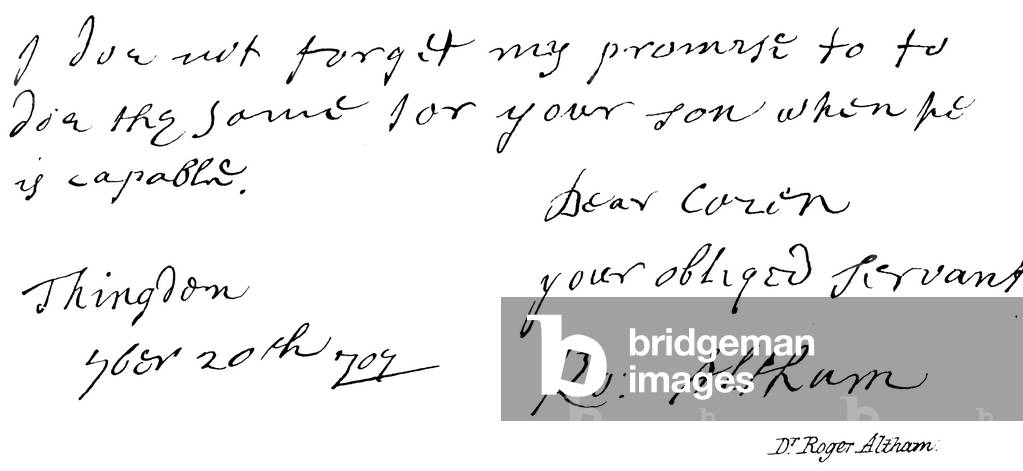 I doe not forget my promise to to
doe the same for your son when he
is capable.
Dear Cozen
your obliged servant
Thingdon
7ber 20th 707
Ro: Altham
Dr Roger Altham.
b bridgeman
images